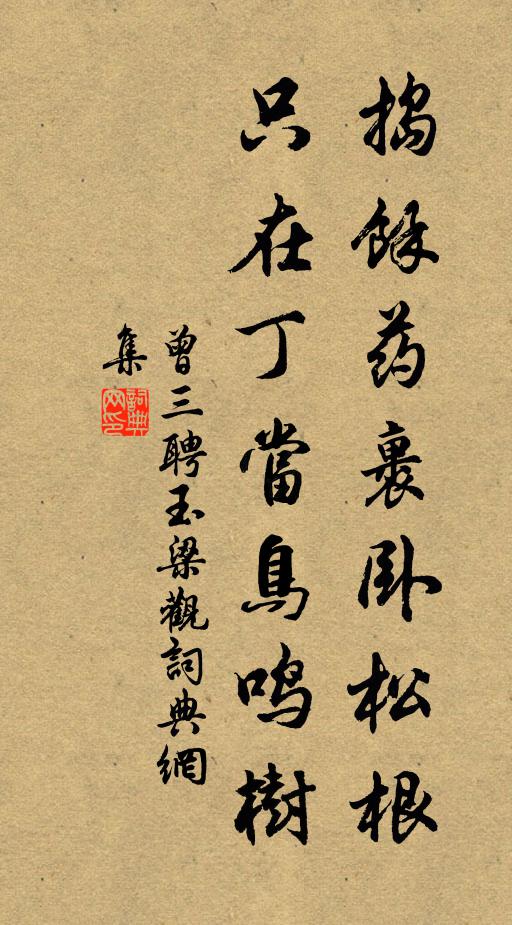 搗餘药裹卧松根
只在丁當鳥鳴樹
曾三聘玉梁觀詞典網
集
詞典
网印